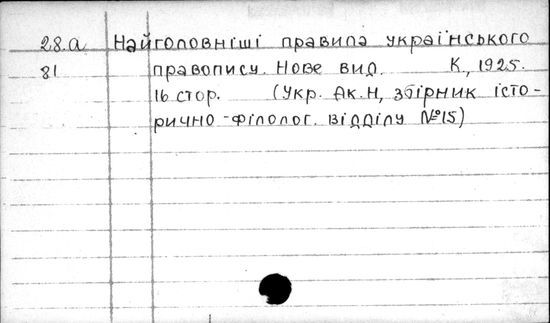 28.а Найголовніші правила українського
81 правопису. Нове вид. К., 1925.
16 стор. (Укр. Ак. Н, збірник істо-
рично-філолог. відділу №15)